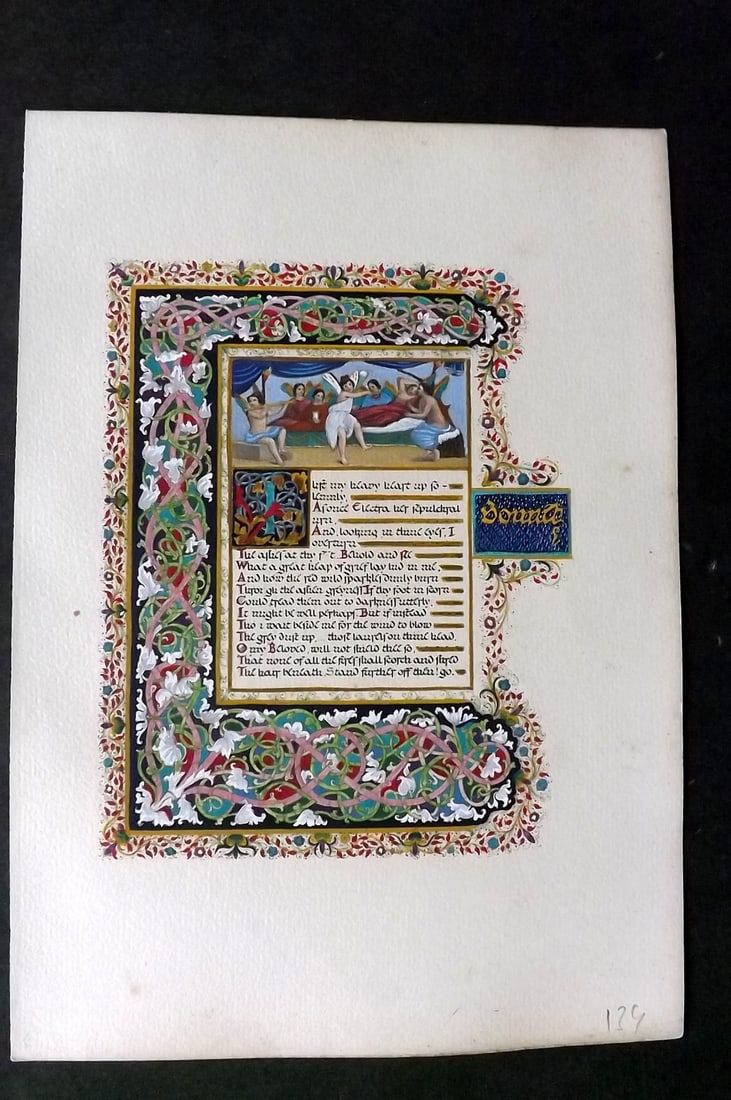 I lift my heavy heart up so-
lemnly,
As once Electra her sepulchral
urn,
And, looking in thine eyes, I
overturn
The ashes at thy Behold and see
What a great heap of grief lay hid in me,
And how the red wild sparkles dimly burn
Through the ashen greyness. If thy foot in scorn
Could tread them out to darkness utterly,
It might be well perhaps. But if instead
Thou wait beside me for the wind to blow
The grey dust up, ... those laurels on thine head,
O my Beloved, will not shield thee so,
That none of all the fires shall scorch and shred
The hair beneath. Stand further off then! go.
Sonnet
5
139